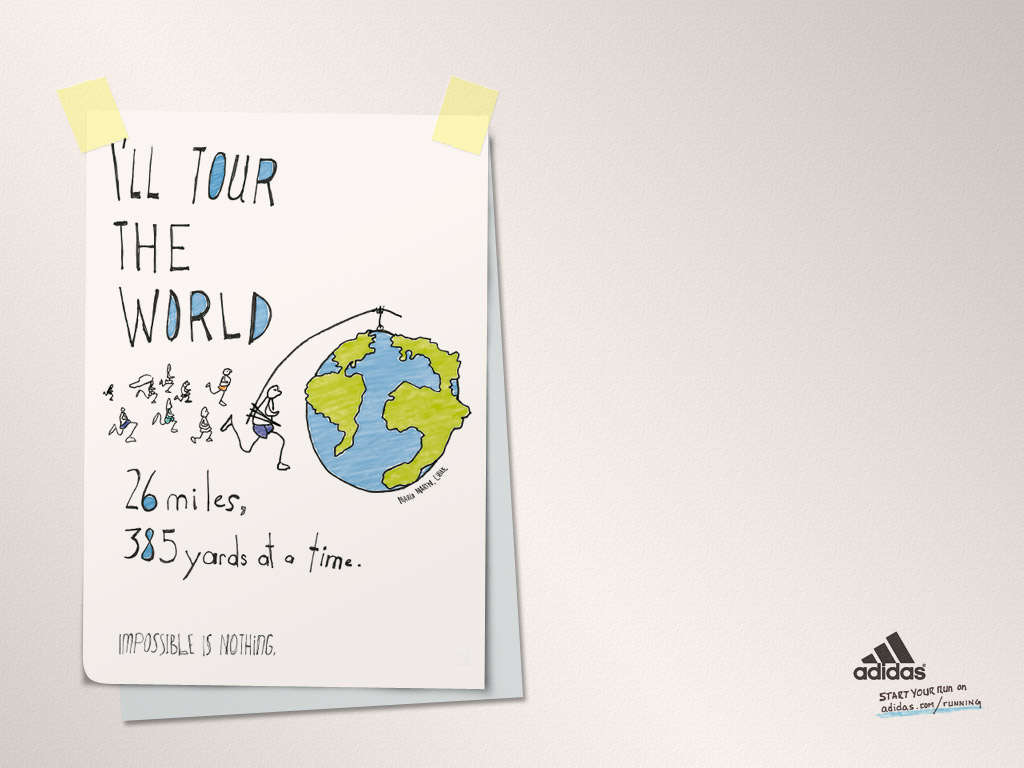 I'LL TOUR
THE
WORLD
26 miles,
385 yards at a time.
IMPOSSIBLE IS NOTHING.
adidas®
START YOUR RUN on
adidas.com/RUNNING